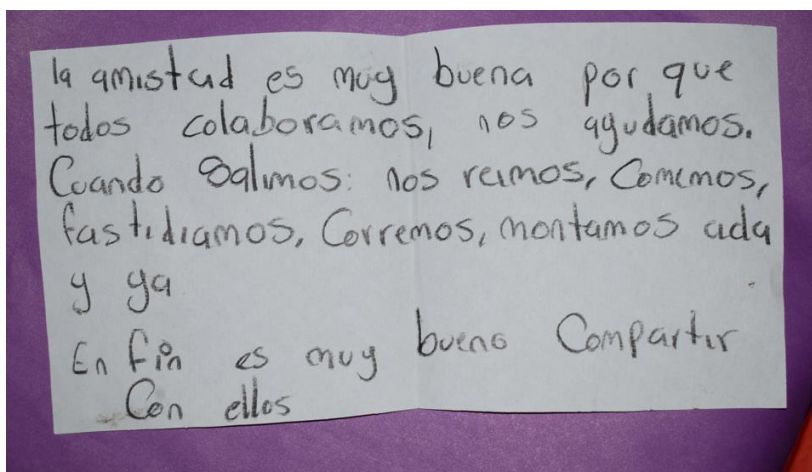 la amistad es muy buena por que
todos colaboramos, nos ayudamos.
Cuando Salimos: nos reimos, Comemos,
fastidiamos, Corremos, montamos cicla
y ya
En fin es muy bueno Compartir
Con ellos